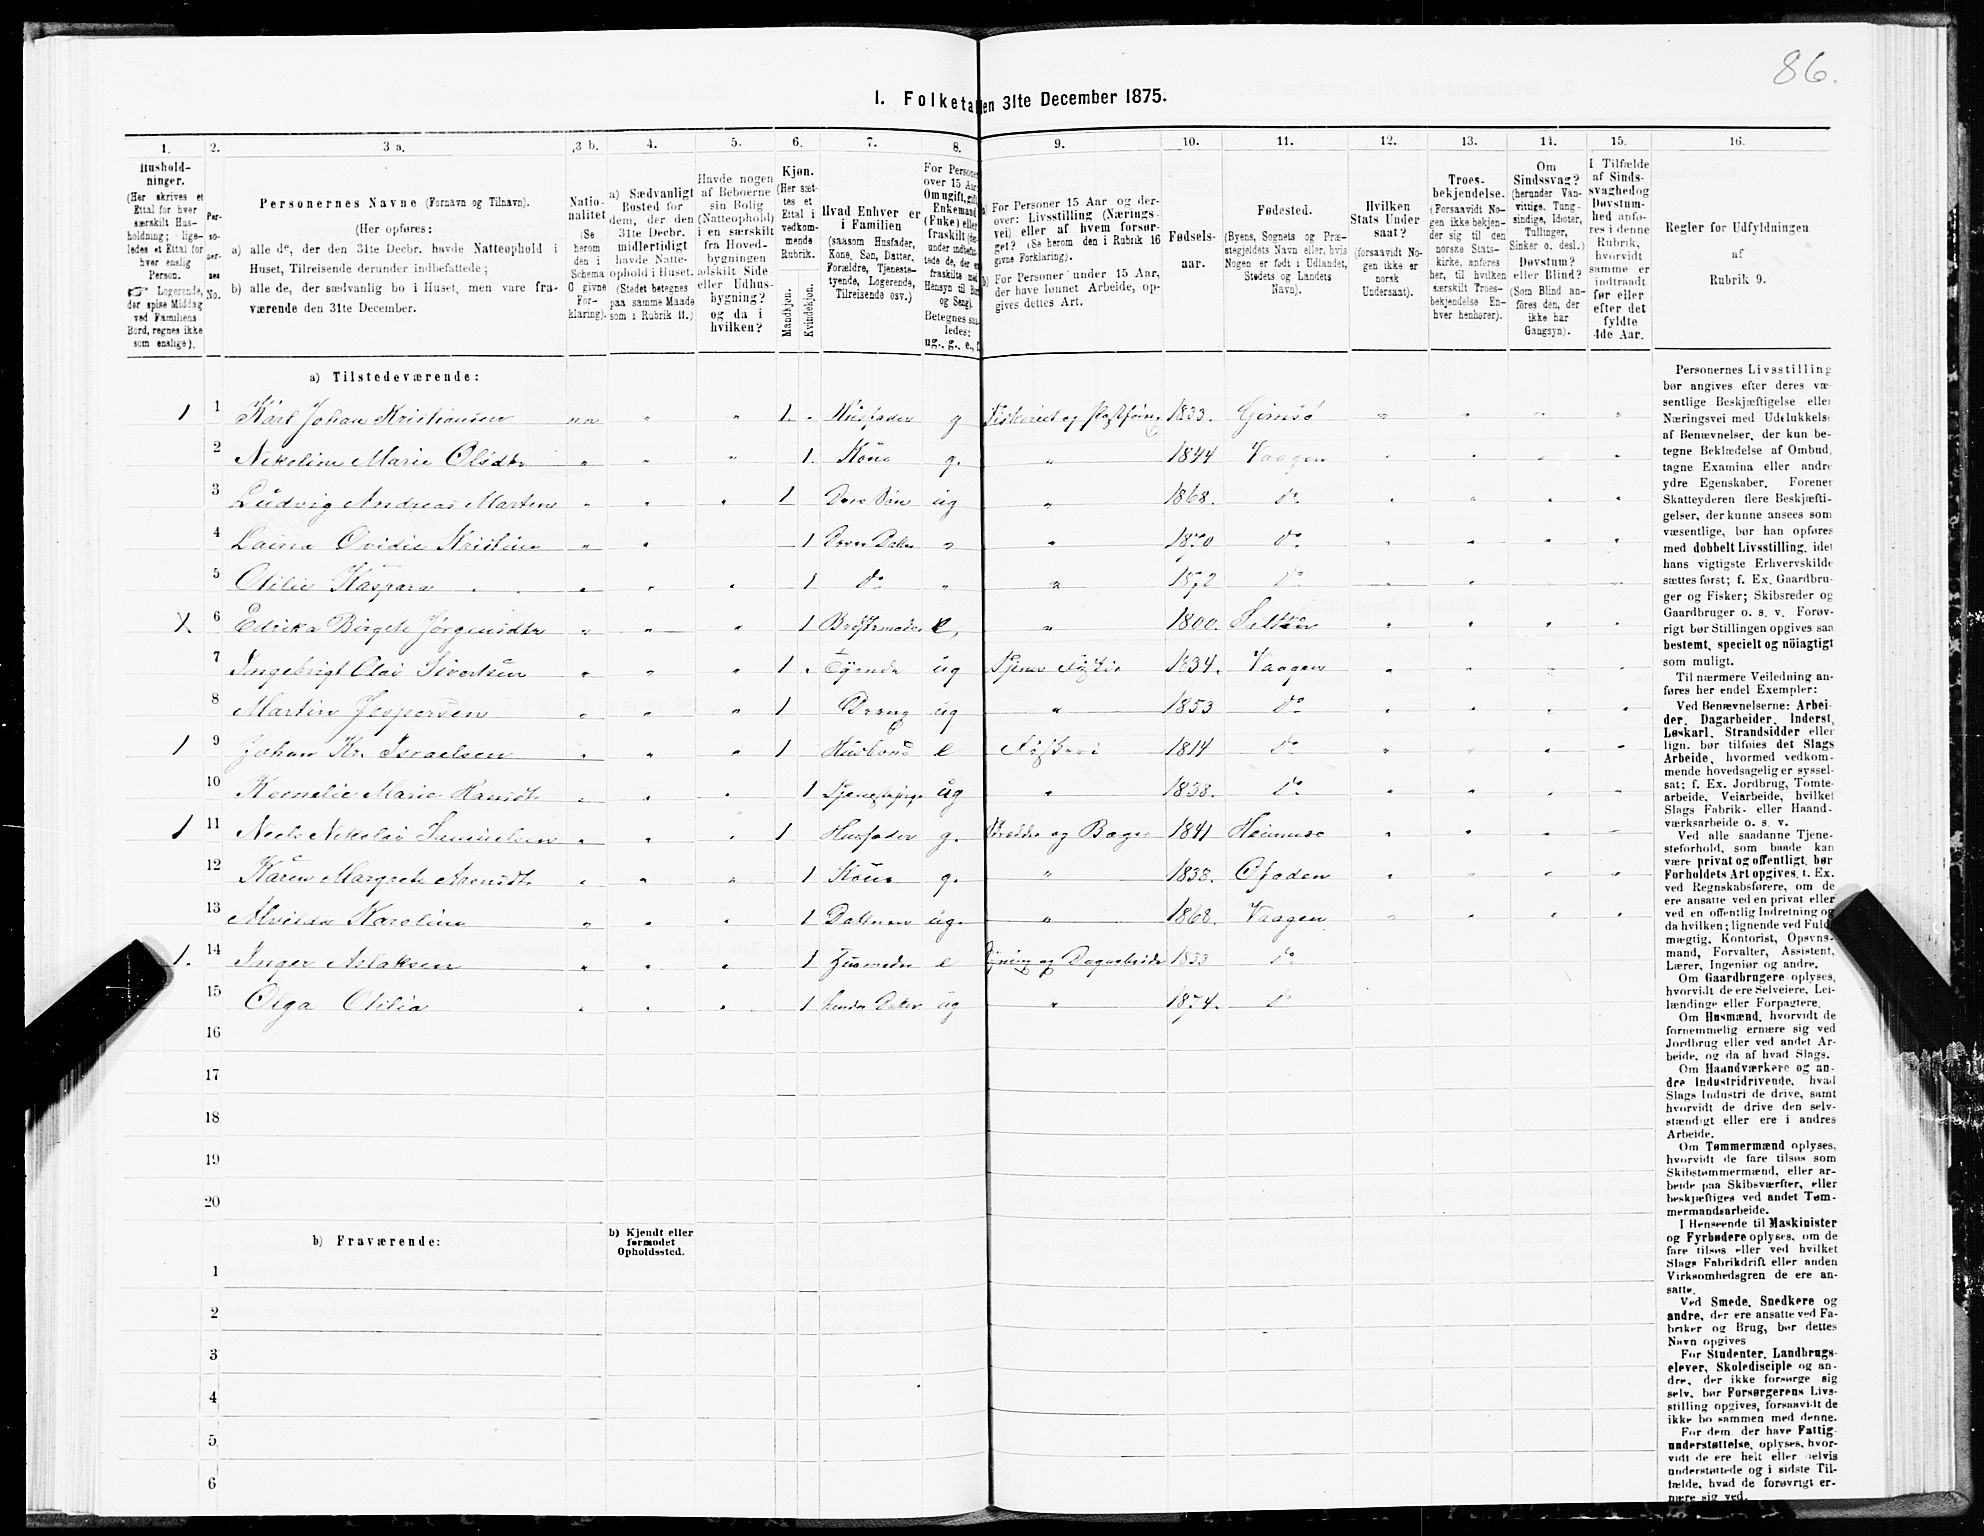 86.
I. Folketal den 31te December 1875.
1. 2. 3 a. 3 b. 4. 5. 6. 7. 8. 9. 10. 11. 12. 13. 14. 15. 16.
Husholdninger. (Her skrives et Ettal for hver særskilt Husholdning; ligeledes et Ettal for hver enslig Person. ☞ Logerende, der spise Middag ved Familiens Bord, regnes ikke som enslige).
Personernes No.
Personernes Navne (Fornavn og Tilnavn).
(Her opføres:
a) alle de, der den 31te Decbr. havde Natteophold i Huset, Tilreisende derunder indbefattede;
b) alle de, der sædvanlig bo i Huset, men vare fraværende den 31te December.
Nationalitet (Se herom den i Schema O givne Forklaring).
a) Sædvanligt Bosted for dem, der den 31te Decbr. midlertidigt havde Natteophold i Huset. (Stedet betegnes paa samme Maade som i Rubrik 11.)
Havde nogen af Beboerne sin Bolig (Natteophold) i en særskilt fra Hovedbygningen adskilt Side- eller Udhusbygning? og da i hvilken?
Kjøn. (Her sættes et Ettal i vedkommende Rubrik.
Mandkjøn. Kvindekjøn.
Hvad Enhver er i Familien (saasom Husfader, Kone, Søn, Datter, Forældre, Tjenestetyende, Logerende, Tilreisende osv.)
For Personer over 15 Aar: Om ugift, gift, Enkemand (Enke) eller fraskilt
Betegnes saaledes: ug., g., e., f.
a) For Personer 15 Aar og derover: Livsstilling (Næringsvei) eller af hvem forsørget? (Se herom den i Rubrik 16 givne Forklaring).
b) For Personer under 15 Aar, der have lønnet Arbeide, opgives dettes Art.
Fødselsaar.
Fødested. (Byens, Sognets og Præstegjeldets Navn eller, hvis Nogen er født i Udlandet, Stedets og Landets Navn).
Hvilken Stats Undersaat? (forsaavidt Nogen ikke er norsk Undersaat).
Troesbekjendelse. (Forsaavidt Nogen ikke bekjender sig til den norske Statskirke, anføres her, til hvilken særskilt Troesbekjendelse Enhver henhører).
Om Sindssvag? (herunder Vanvittige, Tungsindige, Idioter, Tullinger, Sinker o. desl.) Døvstum? eller Blind? (Som Blind anføres den, der ikke har Gangsyn).
I Tilfælde af Sindssvaghed og Døvstumhed anføres i denne Rubrik, hvorvidt samme er indtraadt før eller efter det fyldte 4de Aar.
Regler for Udfyldningen af Rubrik 9.
a) Tilstedeværende:
1 1 Karl Johan Kristiansen nn " " 1 Husfader g Fiskeriet og 1833. Gimsø " " " "
2 Nikoline Marie Olsdtr " " " 1 Kone g. " 1844 Vaagen " " " "
3 Ludvig Andreas Marten " " " 1 Deres Søn ug " 1868. Do " " " "
4 Laura Ovidie Kristine " " 1 Deres Datter " " 1870 Do " " " "
5 Otilie Kaspara " " " 1 Do " " 1872 Do " " " "
6 Edrika Birgete Jørgensdtr " " " 1 e, " 1800. Salten " " " "
7 Ingebrigt Olai Sivertsen " " " 1 Tyende ug Tjener 1834. Vaagen " " " "
8 Martin Jespersen " " " 1 Dreng ug " 1853 Do " " " "
1 9 Johan Kr. Israelsen " " " 1 Husbond e Fiskeri 1814 Do " " " "
10 Kornelie Marie Hansdtr " " " 1 ug " 1838. Do " " " "
1 11 Neels Nikolai Samuelsen " " " 1 Husfader g. og Bager 1841 " " " "
12 Karen Margrete Arensdtr " " " 1 Kone g. " 1838. Ofoden " " " "
13 Alvida Karoline " " " 1 Datteren ug. " 1868. Vaagen " " " "
1. 14 Inger Aslaksen " " " 1 Husmoder e og Dagarbeide 1833 Do
15 Olga Otilia " " " 1 hendes Datter ug " 1874. Do
16
17
18
19
20
b) Fraværende:
b) Kjendt eller formodet Opholdssted.
1
2
3
4
5
6
Personernes Livsstilling
bør angives efter deres væ-
sentlige Beskjæftigelse eller
Næringsvei med Udelukkelse
af Benævnelser, der kun be-
tegne Beklædelse af Ombud,
tagne Examina eller andre
ydre Egenskaber. Forener
Skatteyderen flere Beskjæfti-
gelser, der kunne ansees som
væsentlige, bør han opføres
med dobbelt Livsstilling, idet
hans vigtigste Erhvervskilde
sættes først; f. Ex. Gaardbru-
ger og Fisker; Skibsreder og
Gaardbruger o. s. v. Forøv-
rigt bør Stillingen opgives saa
bestemt, specielt og nøiagtigt
som muligt.
Til nærmere Veiledning an-
føres her endel Exempler:
Ved Benævnelserne: Arbei-
der, Dagarbeider, Inderst,
Løskarl, Strandsidder eller
lign. bør tilføies det Slags
Arbeide, hvormed vedkom-
mende hovedsagelig er syssel-
sat; f. Ex. Jordbrug, Tomte-
arbeide, Veiarbeide, hvilket
Slags Fabrik- eller Haand-
værksarbeide o. s. v.
Ved alle saadanne Tjene-
steforhold, som baade kan
være privat og offentligt, bør
Forholdets Art opgives, t. Ex.
ved Regnskabsførere, om de
ere ansatte ved en privat eller
ved en offentlig Indretning og
da hvilken; lignende ved Fuld-
mægtig, Kontorist, Opsyns-
mand, Forvalter, Assistent,
Lærer, Ingeniør og andre.
Om Gaardbrugere oplyses,
hvorvidt de ere Selveiere, Lei-
lændinge eller Forpagtere.
Om Husmænd, hvorvidt de
fornemmelig ernære sig ved
Jordbrug eller ved andet Ar-
beide, og da af hvad Slags.
Om Haandværkere og an-
dre Industridrivende, hvad
Slags Industri de drive, samt
hvorvidt de drive den selv-
stændigt eller ere i andres
Arbeide.
Om Tømmermænd oplyses,
hvorvidt de fare tilsøs som
Skibstømmermænd, eller ar-
beide paa Skibsværfter, eller
beskjæftiges ved andet Tøm-
mermandsarbeide.
I Henseende til Maskinister
og Fyrbødere oplyses, om de
fare tilsøs eller ved hvilket
Slags Fabrikdrift eller anden
Virksomhedsgren de ere an-
satte.
Ved Smede, Snedkere og
andre, der ere ansatte ved Fa-
briker og Brug, bør dettes
Navn opgives
For Studenter, Landbrugs-
elever, Skoledisciple og an-
dre, der ikke forsørge sig
selv, bør Forsørgerens Livs-
stilling opgives, forsaavidt de
ikke bo sammen med denne.
For dem, der have Fattig-
understøttelse, oplyses, hvor-
vidt de ere helt eller delvis
understøttede og i sidste Til-
fælde, hvad de forøvrigt er-
nære sig ved.